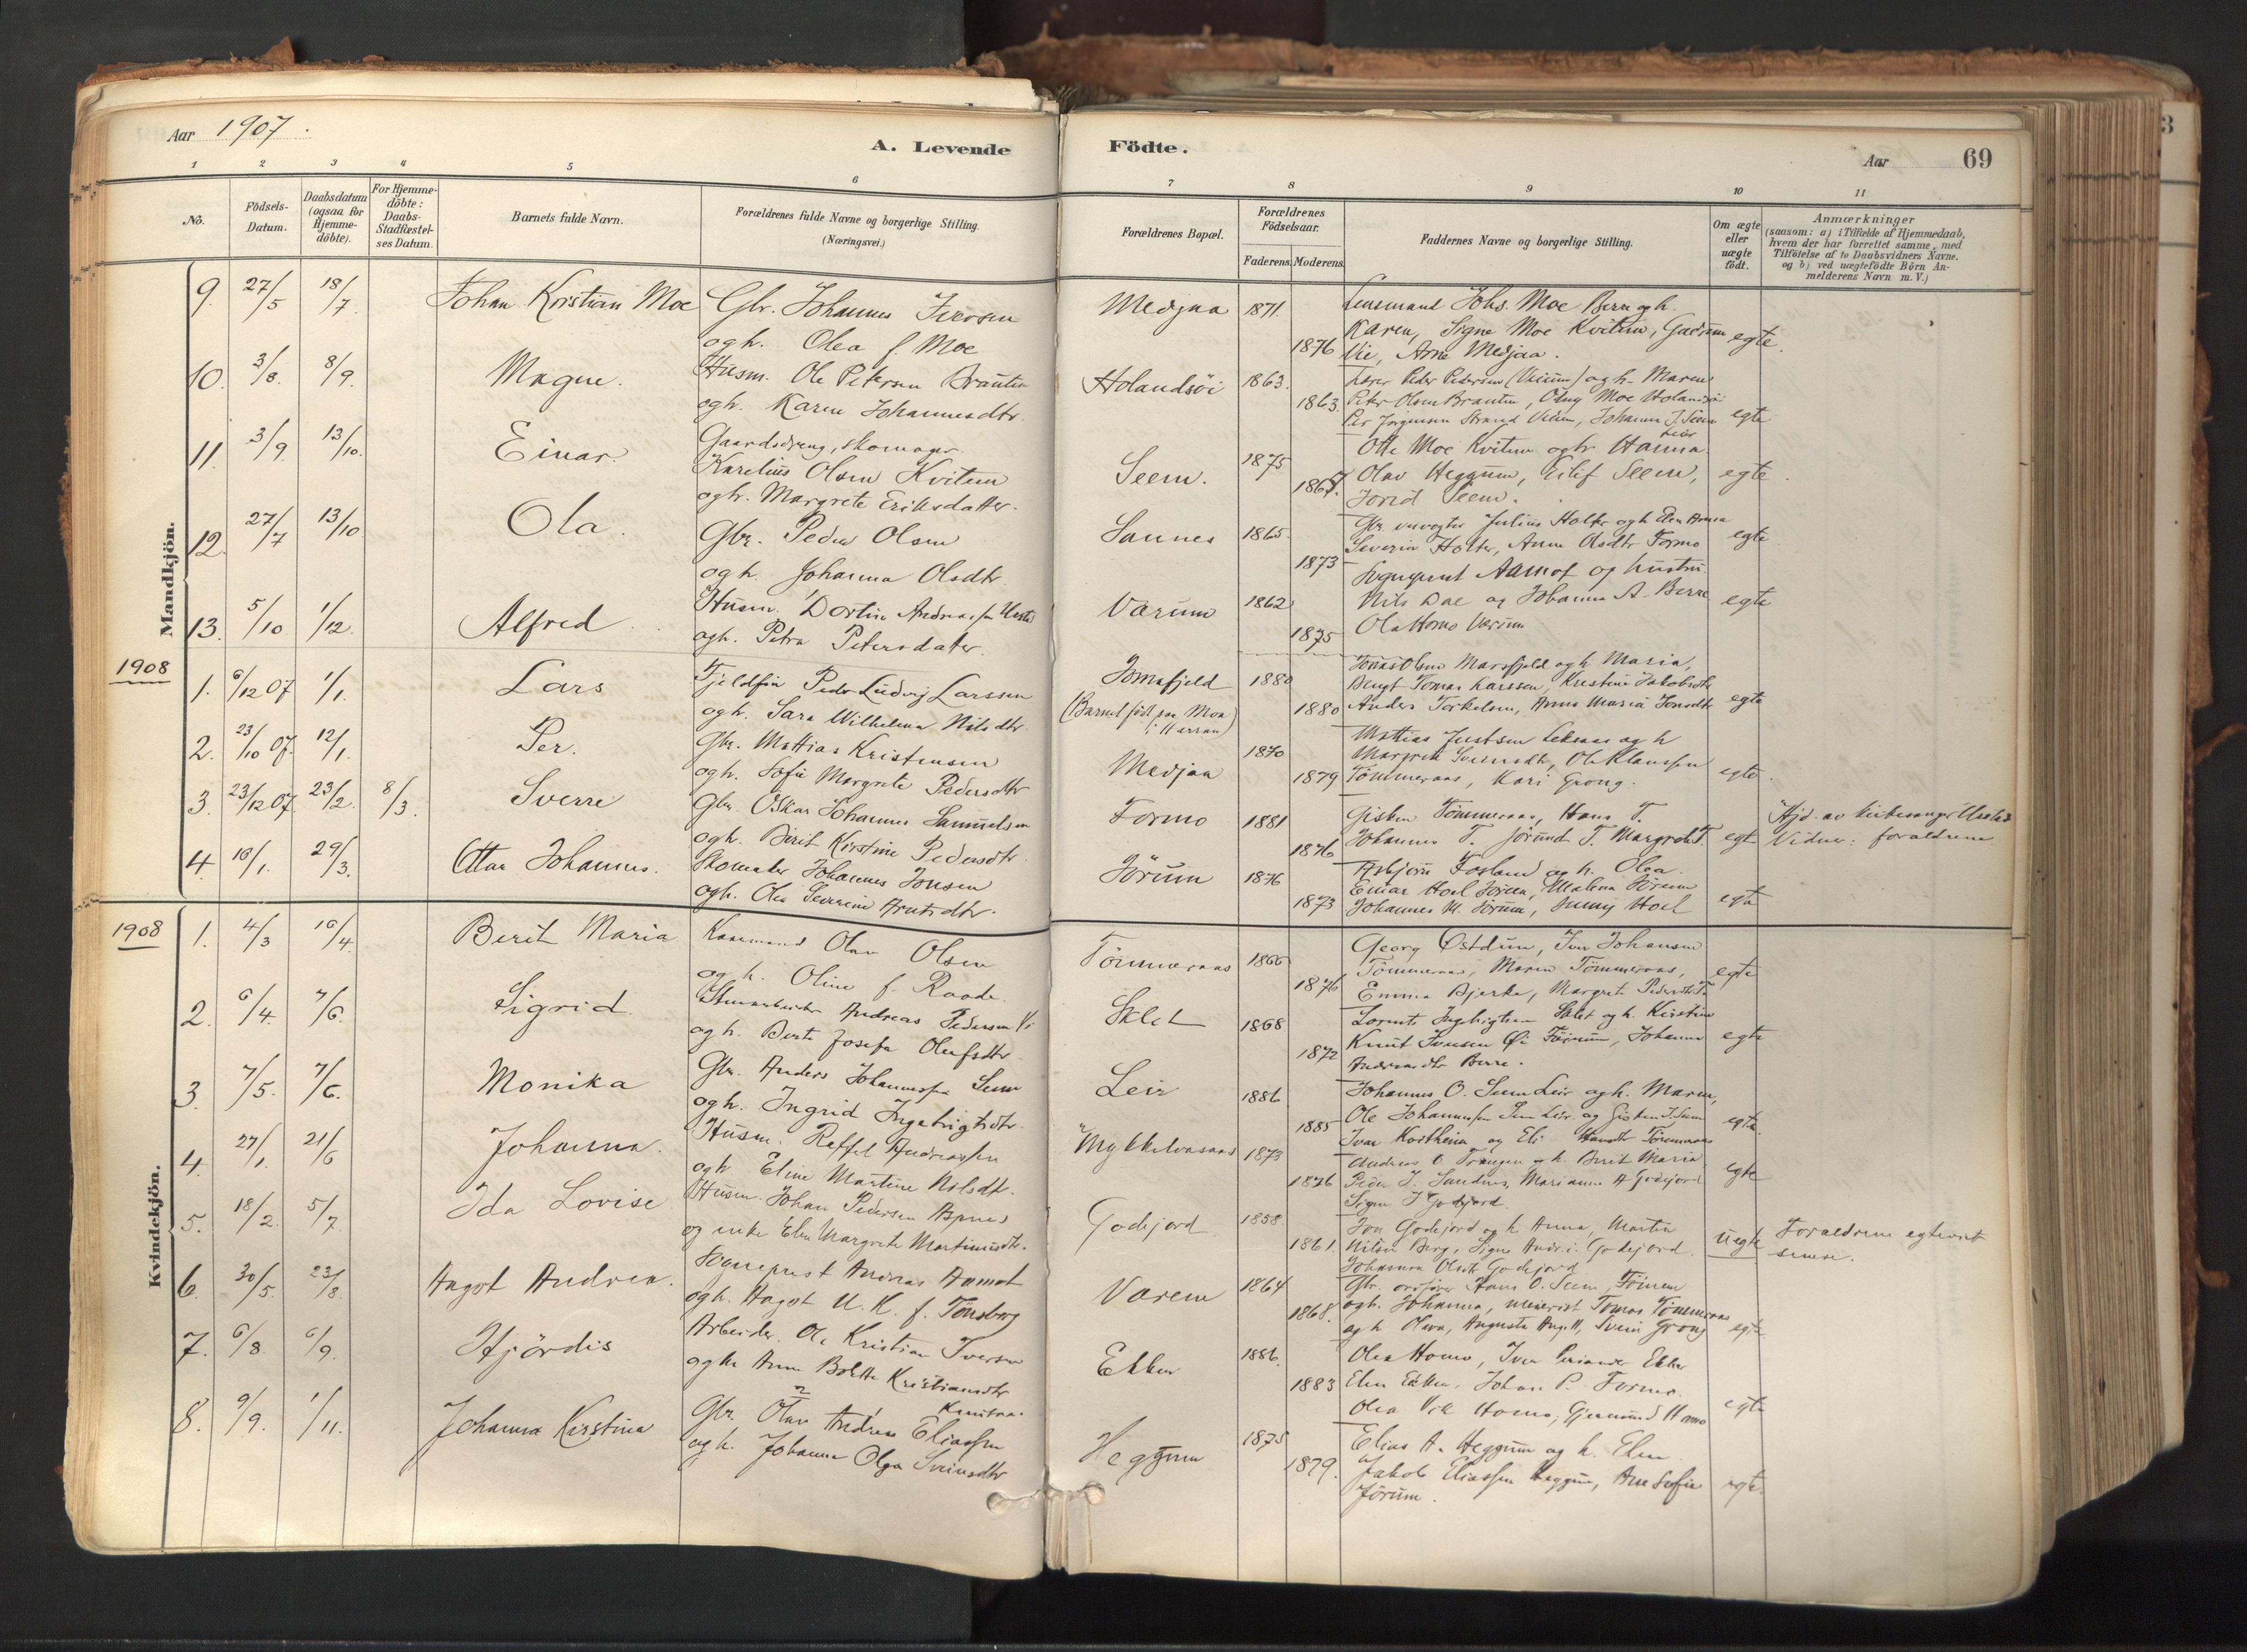 Aar 1907.
A. Levende
Födte.
Aar
69
1 2 3 4 5 6
7 8 9 10 11
No.
Födsels-Datum.
Daabsdatum (ogsaa for Hjemmedöbte).
For Hjemmedöbte: Daabs-Stadfæstelses Datum.
Barnets fulde Navn.
Forældrenes fulde Navne og borgerlige Stilling.
(Næringsvei.)
Forældrenes Bopæl.
Forældrenes Födselsaar.
Faderens. Moderens.
Faddernes Navne og borgerlige Stilling.
Om ægte eller uægte födt.
Anmærkninger
(saasom: a) i Tilfælde af Hjemmedaab, hvem der har forrettet samme, med Tilföielse af to Daabsvidners Navne. og b) ved uægtefödte Börn Anmelderens Navn m. V.)
Mandkjön.
9. 27/5 18/7 Johan Kristian Moe
Gbr. Johannes Iversen
ogh. Olea f. Moe
Medjaa 1871. 1876
Lensmand Johs. Moe Berre ogh.
Karen, Signe Moe Kvitum,
Vie, Arne Medjaa.
egte.
10. 3/8. 8/9. Magne.
Husm. Ole Petersen
ogh. Karen Johannesdtr.
Holandsöi 1863. 1863.
Lærer Peder Pedersen ogh. Maren
Peter Olsen, Moe
Per Jörgensen Strand, Johanna J. Seem
egte
11. 3/9. 13/10. Einar.
Gaardsdreng, skomager
Karelius Olsen Kvitum
ogh. Margrete Eriksdatter.
Seem. 1875 1867.
Otte Moe Kvitum ogh. Hanna
Olav Heggum, Eilif Seem,
Jorid Seem.
egte.
12. 27/7 13/10 Ola.
Gbr. Peder Olsen
ogh. Johanna Olsdtr.
Sannes 1865. 1873
Gbr. Julius Holter ogh. Elen Anna
Severin Holter, Anne Olsdtr Formo
egte
13. 5/10 1/12. Alfred.
Husm. Andreassen
ogh. Petra Petersdatter.
Värum 1862 1875
Sogneprest Aamot og hustru.
Nils Dal og Johanna A. Berre
Ola Homo Värum
egte
1908
1. 6/12 07 1/1. Lars
Fjeldfin Peder Ludvig Larssen
ogh. Sara Wilhelmina Nilsdtr.
Jomafjeld 1880 1880
(Barnet född paa Moa
Jonas Olsen Marsfjeld ogh. Maria,
Bengt Tomas Larssen, Kristine Jakobsdtr
Anders Torkelsen, Anna Maria Jonsdtr
egte
2. 23/10 07. 12/1. Per.
Gbr. Mattias Kristensen
ogh. Sofie Margrete Pedersdtr
Medjaa 1870 1879
Mattias Justsen ogh
Margrete Svensdtr, Ole Klaussen
Tömmeraas, Kari Grong.
egte.
3. 23/12 07. 23/2. 8/3. Sverre
Gbr. Oskar Johannes Samuelsen
ogh. Berit Kirstine Pedersdtr.
Formo 1881 1876
Gisken Tömmeraas, Hans T.
Johannes T. Jörund T. Margrete T.
egte
Hjd. av kirkesanger
Vidner: forældrene
4. 18/1. 29/3. Ottar Johannes.
Skomaker Johannes Jonsen
ogh. Olea Severine Arntsdtr.
Jörum 1876 1873
Asbjörn Fosland og h. Olea.
Einar Hoel, Malena Jörum
Johannes M. Jörum, Hoel
egte
Kvindekjön.
1908
1. 4/3 16/4. Berit Maria
Olav Olsen
og h. Oline f. Raade.
Tömmeraas 1866 1876
Georg Östdun, Iver Johansen
Tömmeraas, Maren Tömmeraas,
Emma Bjerke, Margrete
egte
2. 6/4. 7/6. Sigrid
Andreas Pedersen
og h. Berte Josefa Olufsdtr
Sklet 1868 1872
Lorents Ingebrigtsen Sklet og h. Kirstine
Knut Jonsen Öi, Johanna
Andreasdtr Berre.
egte
3. 7/5. 7/6. Monika
Gbr. Anders Johannessen Seem
ogh. Ingrid Ingebrigtsdtr.
Leir 1886 1885
Johannes O. Seem Leir ogh. Maren,
Ole Johannessen Seem Leir og Gisken J. Seem
Ivar og Eli Tömmeraas
egte.
4. 27/1. 21/6 Johanna.
Husm. Raffel Andreassen
ogh Eline Martine Nilsdtr.
Mykkelvasaas 1873 1876
Andreas O. og h. Berit Maria
Peder J. Sandnes, Marianne A Godejord
Signe J Godejord.
egte
5. 18/2. 5/7. Ida Lovise
Husm. Johan Pedersen Aspnes
og enke Elen Margrete Martinusdtr.
Godejord 1858. 1861.
Jon Godejord og h. Anna, Martin
Nilsen Berg, Signe Andr. i. Godejord.
Johanna Olsdtr Godejord
uegte
Forældrene egteviet
senere.
6. 30/5. 23/8. Aagot Andrea.
Sogneprest Andreas Aamot
ogh. Aagot U. K. f. Tönsberg
Värem 1864 1868.
Gbr. ordförer Hans O. Seem,
ogh. Johanna, meierist Tomas Tömmeraas
og h Olava, Augusta, Svein Grong
egte
7. 6/8. 6/9. Hjördis
Arbeider. Ole Kristian Iversen
og h. Anne Bolette Kristiansdtr
Ekker 1886. 1883
Olea Homo, Iver Ekker
Elen Ekker, Johan P. Formo.
Olea Vik Homo, Gjermund Homo
egte
8. 9/9. 1/11. Johanna Kirstina
Gbr. Olav Andreas Eliassen
og h. Johanna Olga Sveinsdtr
Heggum 1875 1879.
Elias A. Heggum og h. Elen
Jakob Eliassen Heggum, Ane Sofie
Jörum.
egte.
3